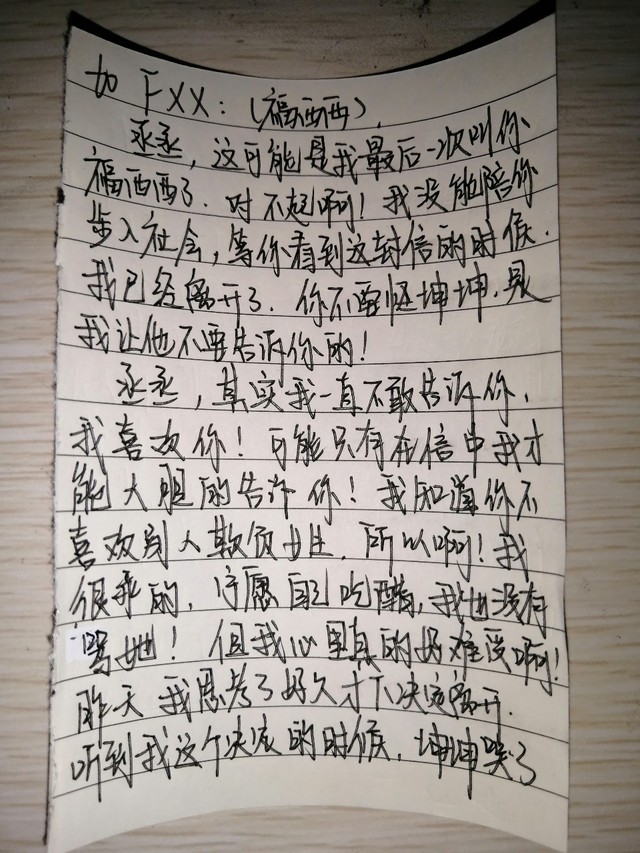 to FXX：(福西西)，
丞丞，这可能是我最后一次叫你
福西西了．对不起啊！我没能陪你
步入社会，等你看到这封信的时候．
我已经离开了．你不要怪坤坤．是
我让他不要告诉你的！
丞丞，其实我一直不敢告诉你，
我喜欢你！可能只有在信中我才
能大胆的告诉你！我知道你不
喜欢别人欺负女生．所以啊！我
很乖的，宁愿自己吃醋，我也没有
骂她！但我心里真的好难受啊！
昨天我思考了好久才下决定离开．
听到我这个决定的时候．坤坤哭了